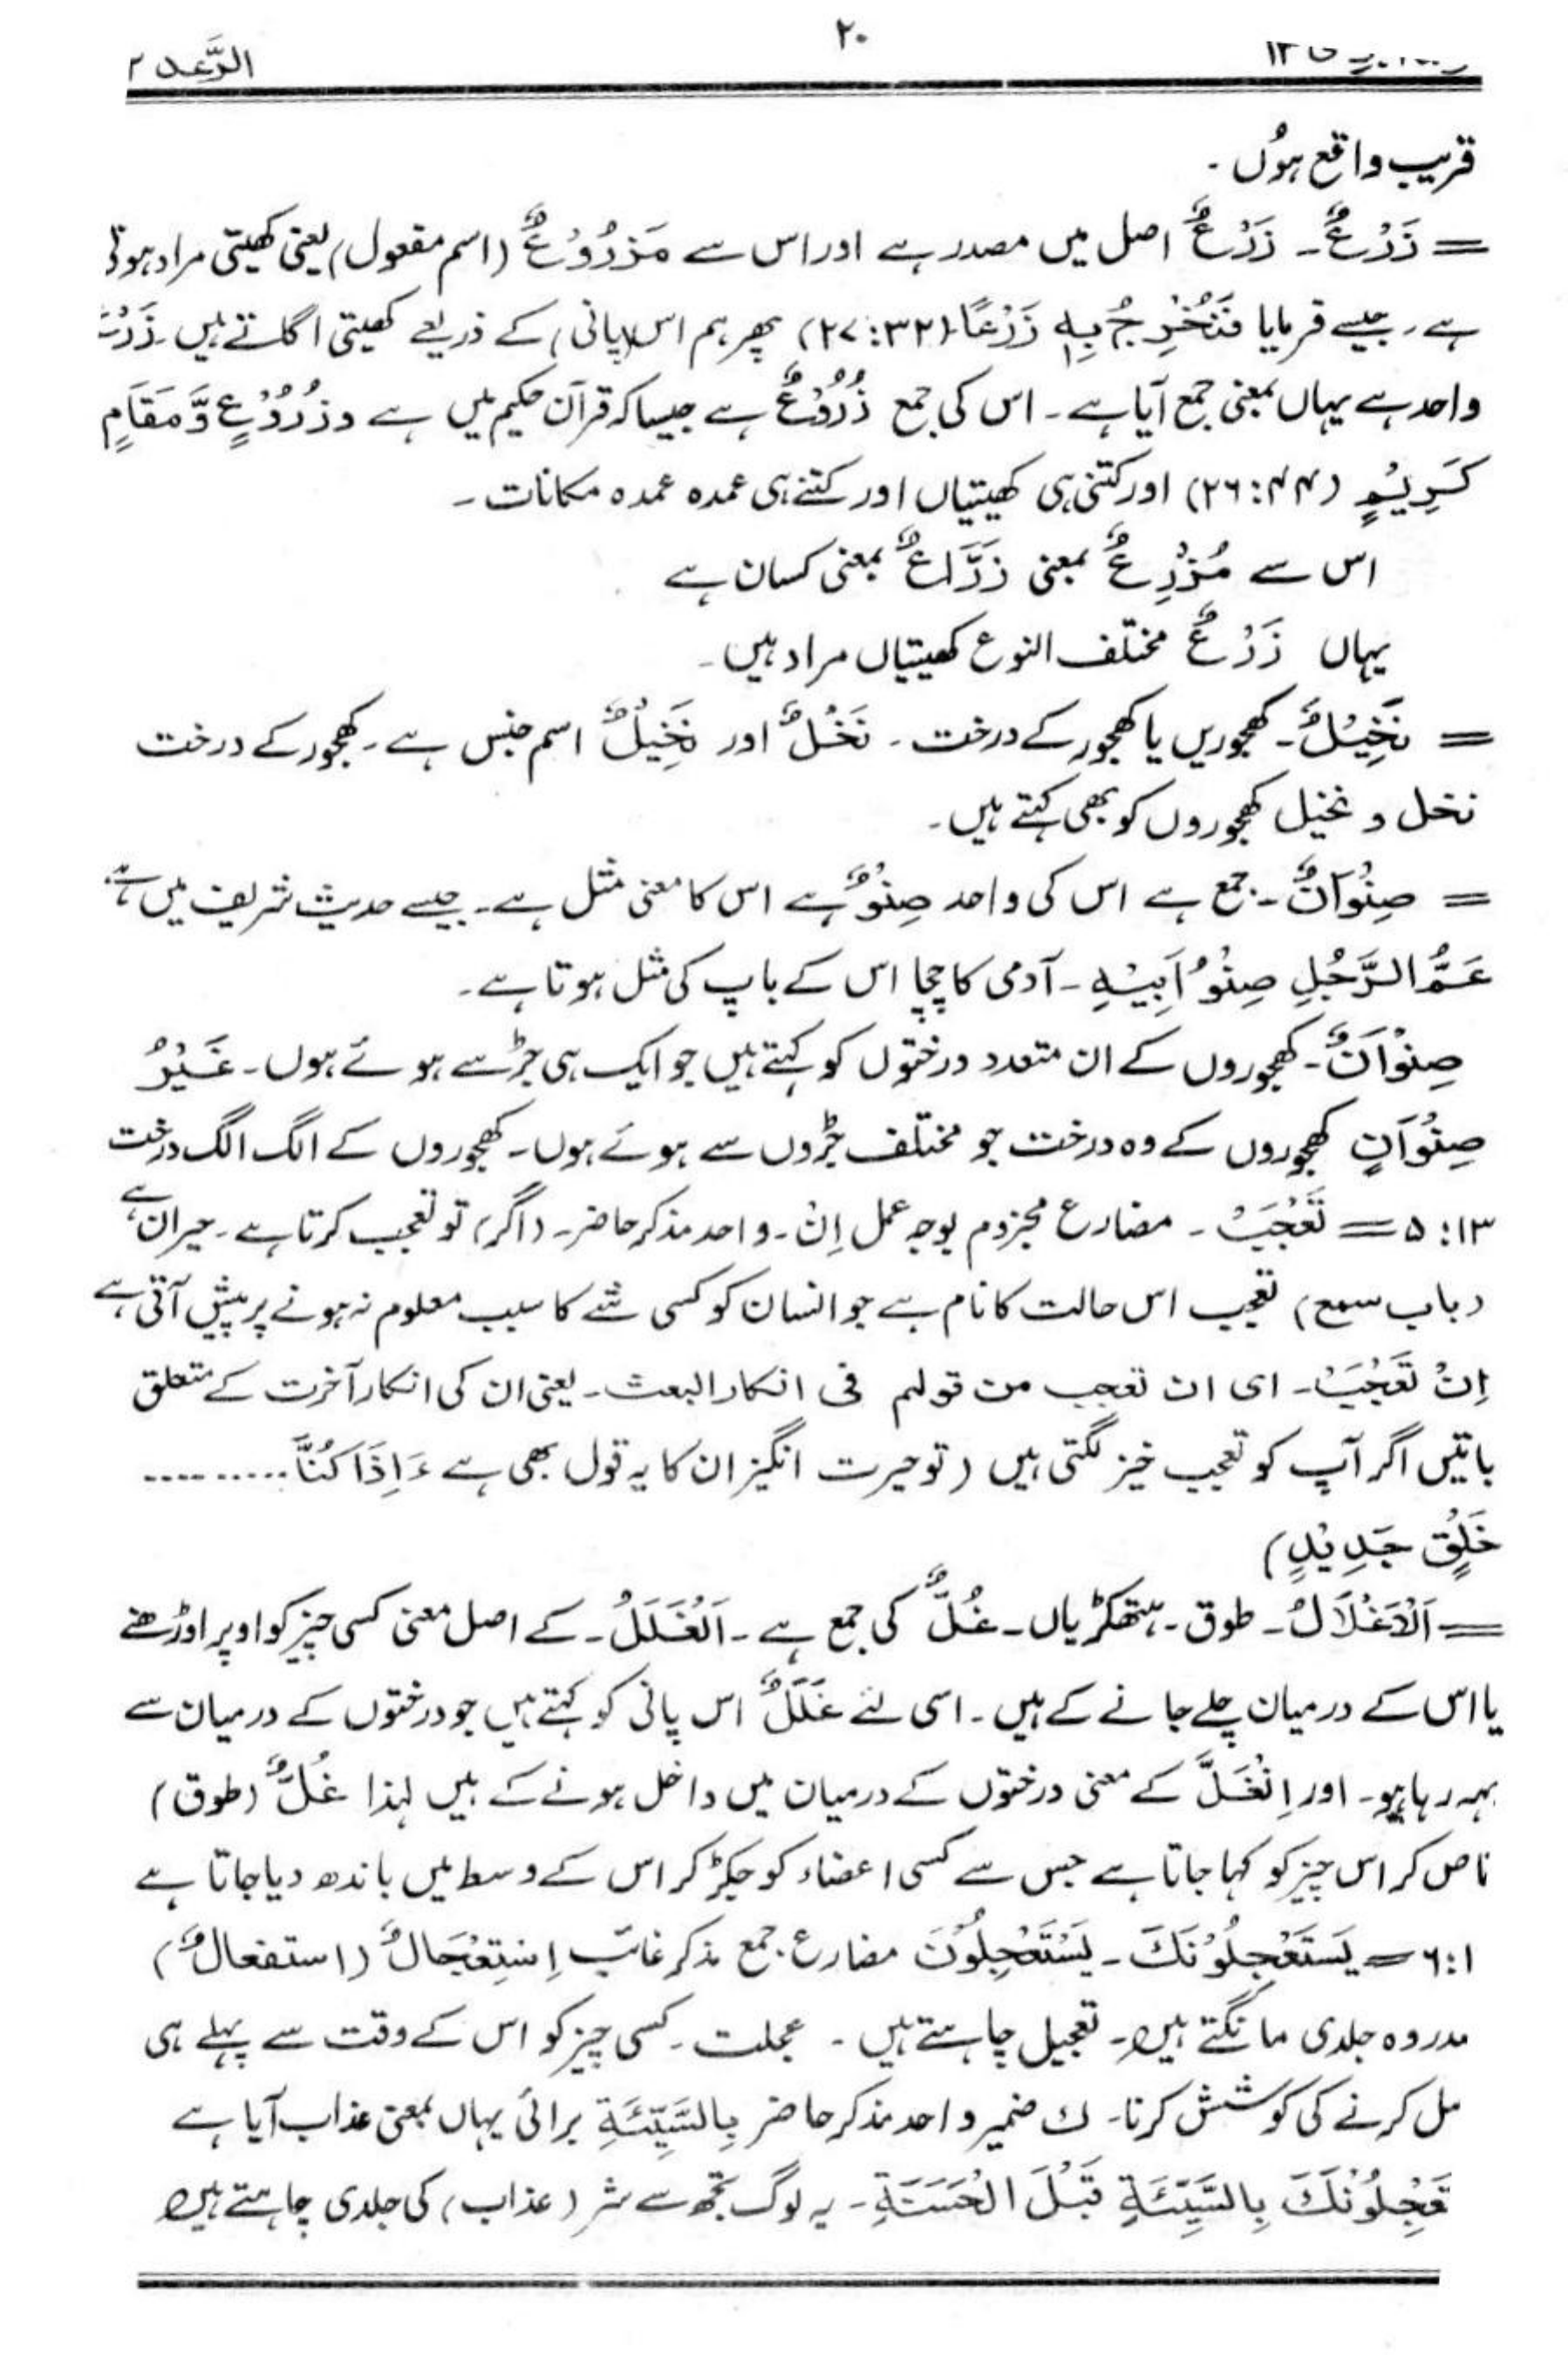 ۲۰
الرَّعد ۲
قریب واقع ہوُں ۔
= زَرْعٌ ۔ زَرْعٌ اصل میں مصدر ہے اور اس سے مَزْرُوْعٌ (اسم مفعول) یعنی کھیتی مراد ہوتی
ہے۔ جیسے فرمایا فَنُخْرِجُ بِہٖ زَرْعًا (۳۲:۲۷) پھر ہم اس (پانی) کے ذریعے کھیتی اگاتے ہیں۔ زَرْعٌ
واحد ہے یہاں بمعنی جمع آیا ہے ۔ اس کی جمع زُرُوْعٌ ہے جیسا کہ قرآن حکیم میں ہے وزُرُوْعٍ وَّ مَقَامٍ
کَرِیْمٍ (۴۴:۲۶) اور کتنی ہی کھیتیاں اور کتنے ہی عمدہ عمدہ مکانات ۔
اس سے مُزْرِعٌ بمعنی زَرَّاعٌ بمعنی کسان ہے
یہاں زَرْعٌ مختلف النوع کھیتیاں مراد ہیں۔
= نَخِیْلٌ ۔ کھجوریں یا کھجور کے درخت ۔ نَخْلٌ اور نَخِیْلٌ اسم جنس ہے ۔ کھجور کے درخت
نخل و نخیل کھجوروں کو بھی کہتے ہیں۔
= صِنْوَانٌ ۔ جمع ہے اس کی واحد صِنْوٌ ہے اس کا معنی مثل ہے ۔ جیسے حدیث شریف میں ہے:
عَمُّ الرَّجُلِ صِنْوُ اَبِیْہِ ۔ آدمی کا چچا اس کے باپ کی مثل ہوتا ہے ۔
صِنْوَانٌ ۔ کھجوروں کے ان متعدد درختوں کو کہتے ہیں جو ایک ہی جڑ سے ہوئے ہوں ۔ غَیْرُ
صِنْوَانٍ کھجوروں کے وہ درخت جو مختلف جڑوں سے ہوئے ہوں ۔ کھجوروں کے الگ الگ درخت
۱۳:۵ = تَعْجَبْ ۔ مضارع مجزوم بوجہ عمل اِنْ ۔ واحد مذکر حاضر ۔ (اگر) تو تعجب کرتا ہے ۔ حیران ہے
(باب سمع) تعجب اس حالت کا نام ہے جو انسان کو کسی شے کا سبب معلوم نہ ہونے پر پیش آتی ہے
اِنْ تَعْجَبْ ۔ ای ان تعجب من قولہم فی انکار البعث ۔ یعنی ان کی انکار آخرت کے متعلق
باتیں اگر آپ کو تعجب خیز لگتی ہیں (تو حیرت انگیز ان کا یہ قول بھی ہے ءَاِذَا کُنَّا..........
خَلْقٍ جَدِیْدٍ)
= اَلْاَغْلَالُ ۔ طوق ۔ ہتھکڑیاں ۔ غُلٌّ کی جمع ہے ۔ اَلْغَلَلُ ۔ کے اصل معنی کسی چیز کو اوپر اوڑھنے
یا اس کے درمیان چلے جانے کے ہیں ۔ اسی لئے غَلَلٌ اس پانی کو کہتے ہیں جو درختوں کے درمیان سے
بہہ رہا ہو۔ اور اِنْغَلَّ کے معنی درختوں کے درمیان میں داخل ہونے کے ہیں لہذا غُلٌّ (طوق)
خاص کر اس چیز کو کہا جاتا ہے جس سے کسی اعضاء کو جکڑ کر اس کے وسط میں باندھ دیا جاتا ہے
۶:۱ = یَسْتَعْجِلُوْنَکَ ۔ یَسْتَعْجِلُوْنَ مضارع جمع مذکر غائب اِسْتِعْجَالٌ (استفعالٌ)
مدر وہ جلدی مانگتے ہیں۔ تعجیل چاہتے ہیں ۔ عجلت ۔ کسی چیز کو اس کے وقت سے پہلے ہی
مل کرنے کی کوشش کرنا۔ ک ضمیر واحد مذکر حاضر بِالسَّیِّئَۃِ برائی یہاں بمعنی عذاب آیا ہے
تَعْجِلُوْنَکَ بِالسَّیِّئَۃِ قَبْلَ الْحَسَنَۃِ ۔ یہ لوگ تجھ سے شر (عذاب) کی جلدی چاہتے ہیں